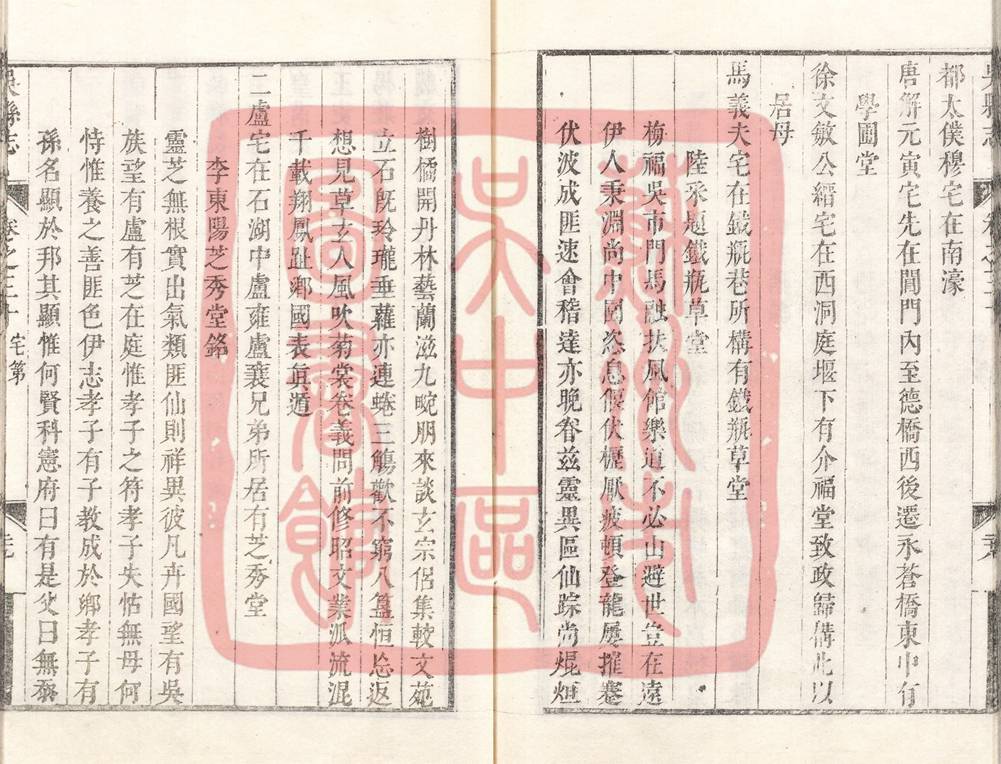 都太僕穆宅在南濠
唐解元寅宅先在閶門內至德橋西後遷永蒼橋東中有
學圃堂
徐文敏公縉宅在西洞庭堰下有介福堂致政歸搆此以
居母
馬義夫宅在鐵瓶巷所構有鐵瓶草堂
陸采題鐵瓶草堂
梅福吳市門馬融扶風館樂道不必山避世豈在遠
伊人秉淵尚中園恣息偃伏櫪厭疲頓登龍屢擢蹇
伏波成匪速會稽達亦晚眷茲靈異區仙踪尚焜烜
樹橘開丹林藝蘭滋九畹朋來談玄宗侶集較文苑
立石旣玲瓏垂蘿亦連蜷三觴歡不窮八簋恒忘返
想見草玄人風吹菊裳卷義問前修昭文業泒流混
千載翔鳳趾鄉國表眞遁
二盧宅在石湖中盧雍盧襄兄弟所居有芝秀堂
李東陽芝秀堂銘
靈芝無根實出氣類匪仙則祥異彼凡卉國望有吳
族望有盧有芝在庭惟孝子之符孝子失怙無母何
恃惟養之善匪色伊志孝子有子教成於鄉孝子有
孫名顯於邦其顯惟何賢科憲府曰有是父曰無忝
吳縣志
卷之二十
宅第
蘇州
吳中區
圖書館